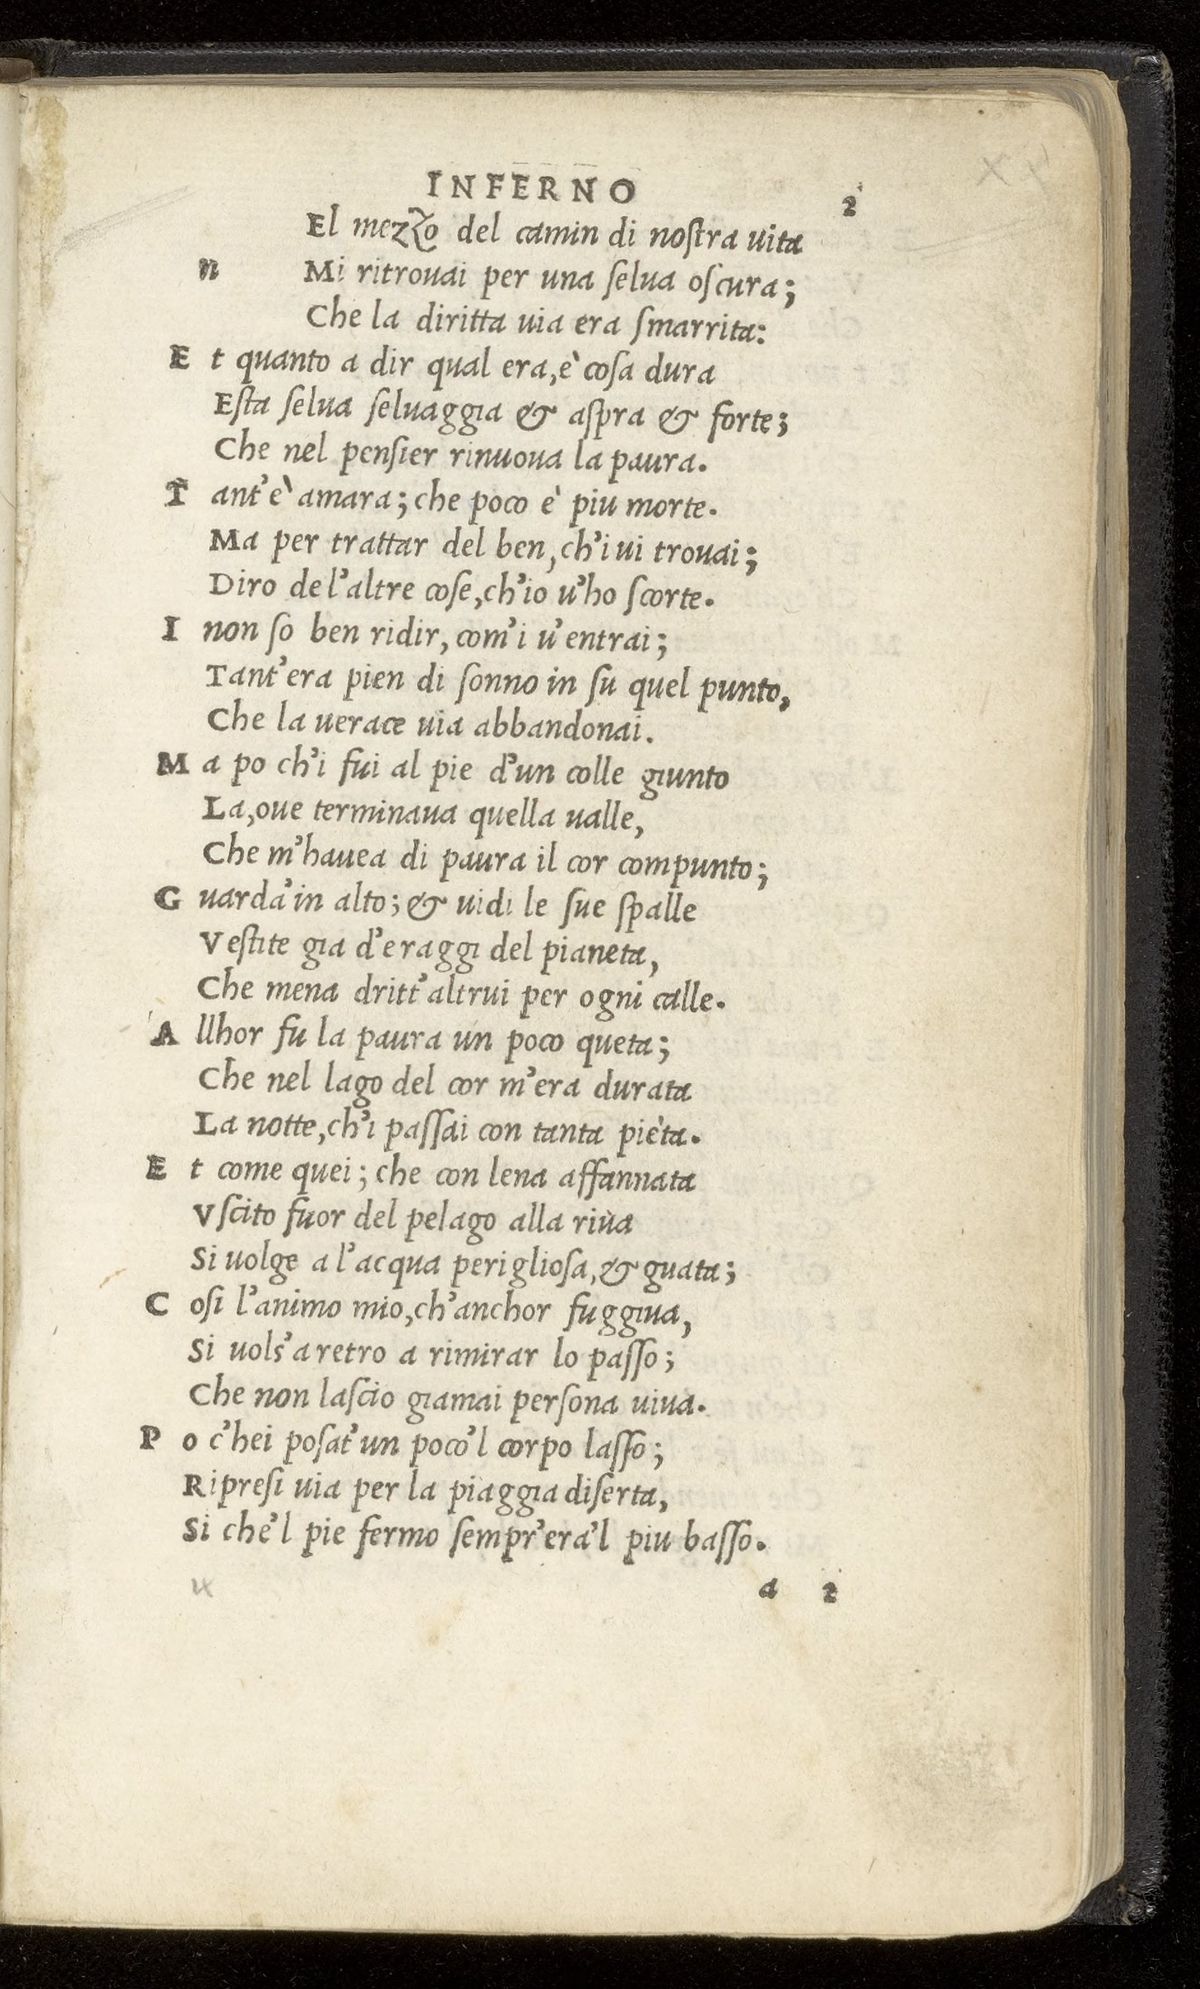 INFERNO
2
El mezzo del camin di nostra uita
n Mi ritrouai per una ſelua oſcura;
Che la diritta uia era ſmarrita:
E t quanto a dir qual era, è coſa dura
Eſta ſelua ſeluaggia & aſpra & forte;
Che nel penſier rinuoua la paura.
T ant'è amara; che poco è piu morte.
Ma per trattar del ben, ch'i ui trouai;
Diro de l'altre coſe, ch'io u'ho ſcorte.
I non ſo ben ridir, com'i u'entrai;
Tant'era pien di ſonno in ſu quel punto,
Che la uerace uia abbandonai.
M a po ch'i fui al pie d'un colle giunto
La, oue terminaua quella ualle,
Che m'hauea di paura il cor compunto;
G uarda' in alto; & uidi le ſue ſpalle
Veſtite gia d'e raggi del pianeta,
Che mena dritt'altrui per ogni calle.
A llhor fu la paura un poco queta;
Che nel lago del cor m'era durata
La notte, ch'i paſſai con tanta pièta.
E t come quei; che con lena affannata
Vſcito fuor del pelago alla riua
Si uolge a l'acqua perigliosa, & guata;
C oſi l'animo mio, ch'anchor fuggiua,
Si uolſ'a retro a rimirar lo paſſo;
Che non laſcio giamai perſona uiua.
P o c'hei poſat'un poco'l corpo laſſo;
Ripreſi uia per la piaggia diſerta,
Si che'l pie fermo ſempr'era'l piu baſſo.
a 2